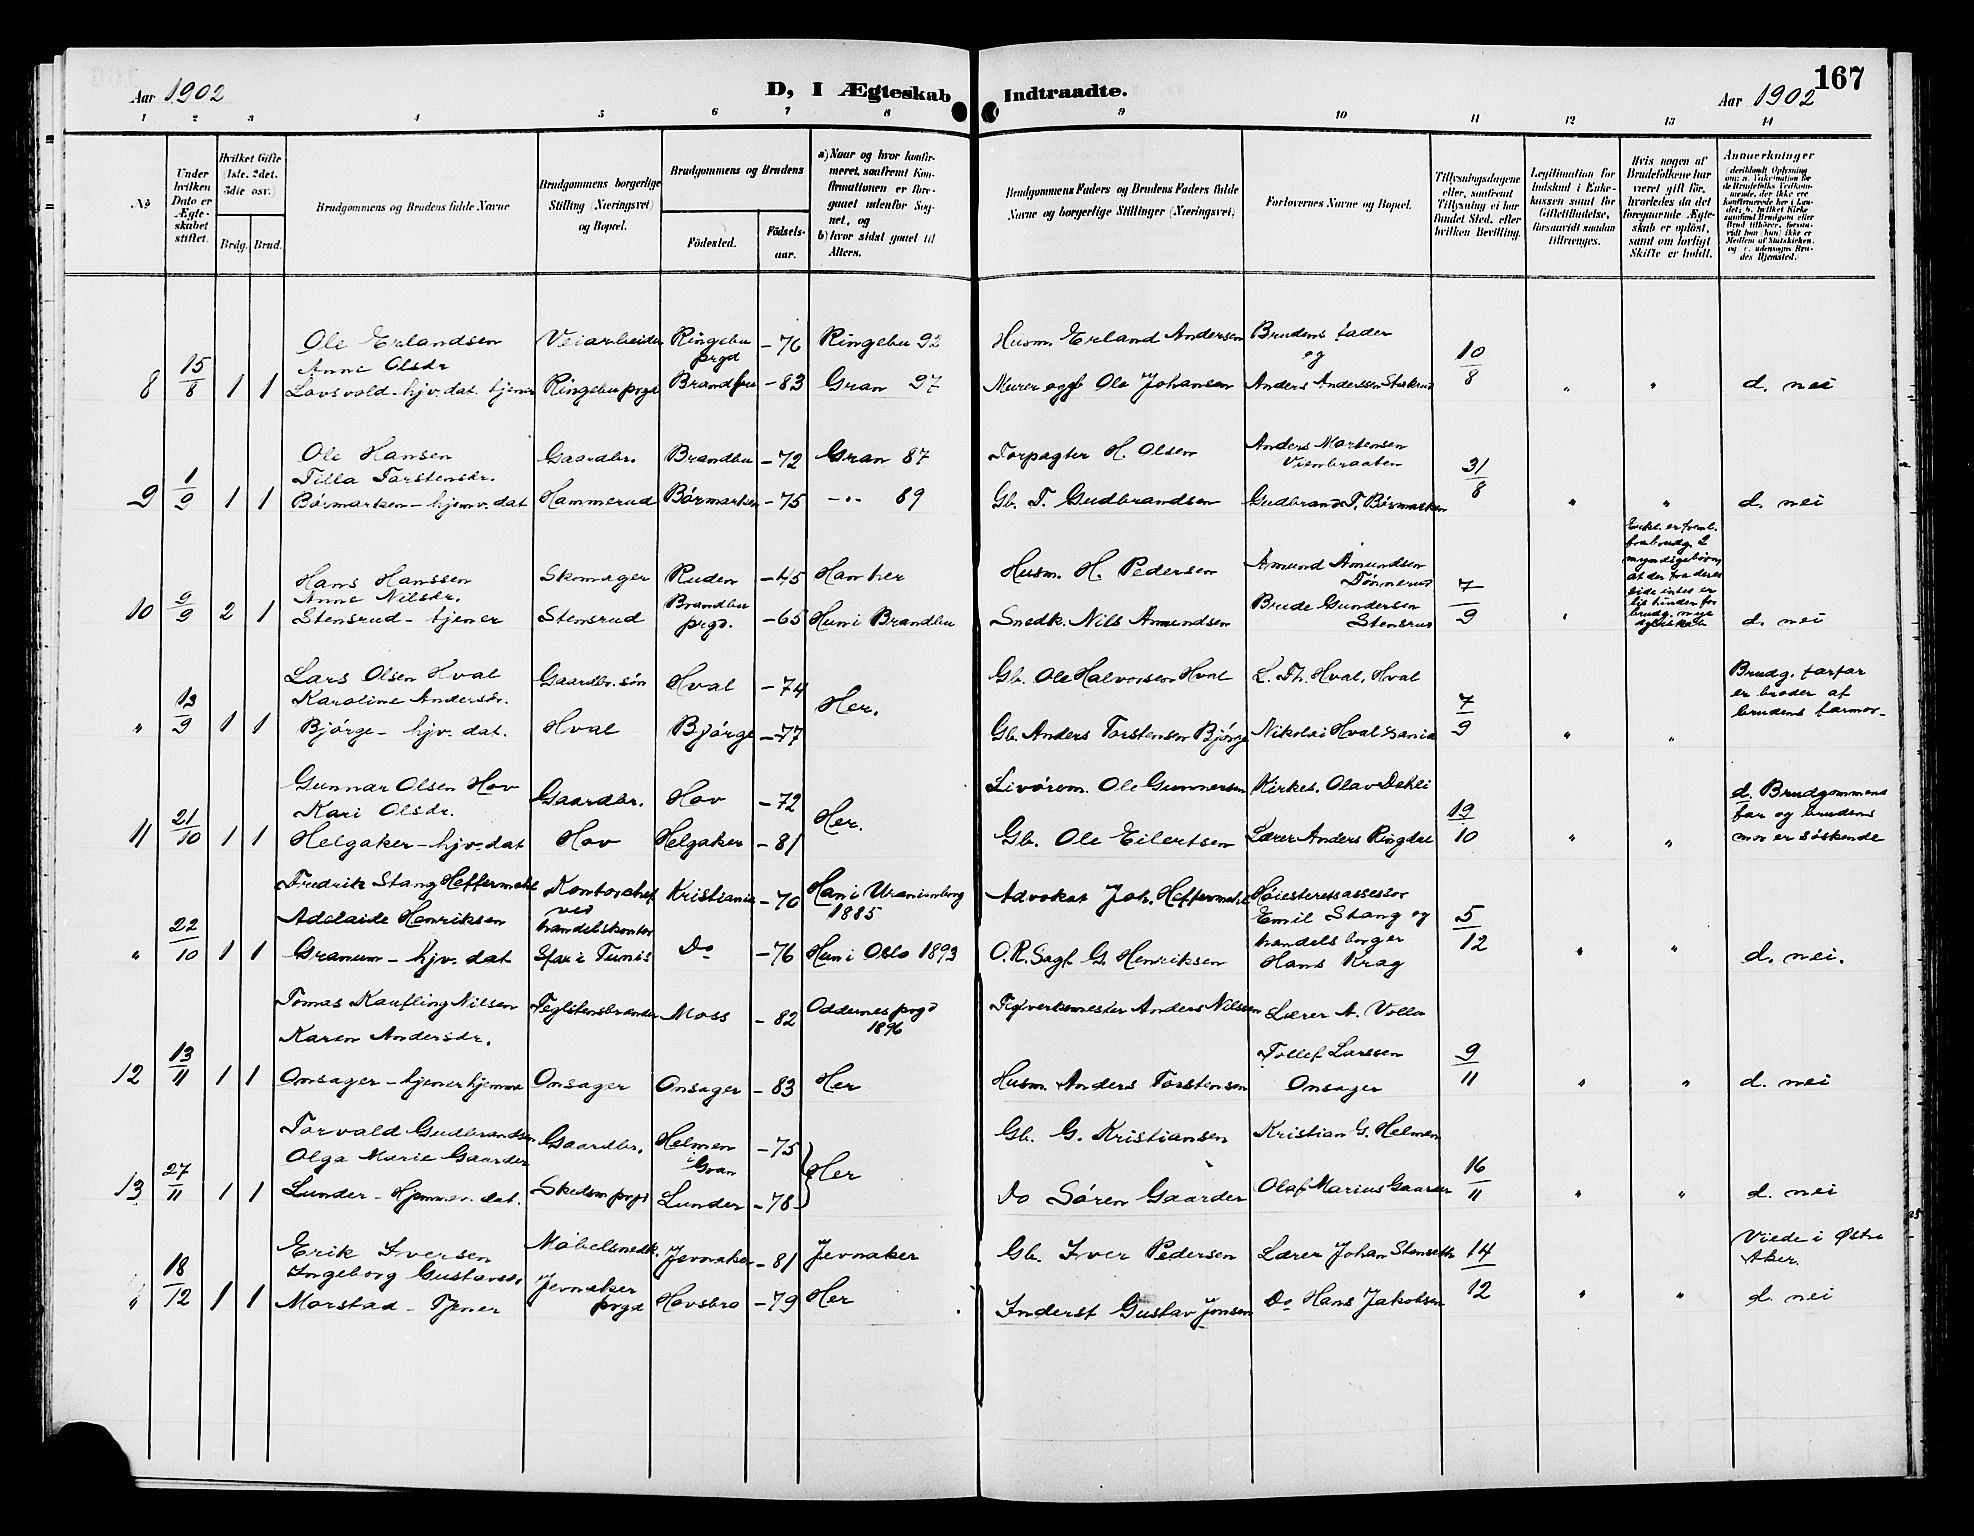 167
Aar 1902
D, I Ægteskab Indtraadte.
Aar 1902
1 2 3 4 5 6 7 8 9 10 11 12 13 14
No
Under hvilken Dato er Ægteskabet stiftet.
Hvilket Gifte (1ste. 2det. 3die osv.)
Brdg. Brud.
Brudgommens og Brudens fulde Navne
Brudgommens borgerlige Stilling (Næringsvei) og Bopæl.
Brudgommens og Brudens
Födested.
Födselsaar.
a) Naar og hvor konfirmeret, saafremt Konfirmationen er foregaaet udenfor Sognet, og
b) hvor sidst gaaet til Alters.
Brudgommens Faders og Brudens Faders fulde Navne og borgerlige Stillinger (Næringsvei)
Forlovernes Navne og Bopæl.
Tillysningsdagene eller, saafremt Tillysning ei har fundet Sted, efter hvilken Bevilling.
Legitimation for Indskud i Enkekassen samt for Giftetilladelse, forsaavidt saadan tiltrænges.
Hvis nogen af Brudefolkene har været gift för, hvorledes da det foregaaende Ægteskab er oplöst, samt om lovligt Skifte er holdt.
Anmerkninger
Ole Erlandsen Veiarbeider Ringebu prgd -76 Ringebu 92 Husm. Erland Andersen Brudens fader og
8 15/8 1 1 Anne Olsdr Lovsvold - hjv. dat. tjener Ringebu prgd Brandbu -83 Gran 97 Murer og gf Ole Johansen Anders Andersen 10/8 " " d. nei
Ole Hansen Gaardbr. Brandbu -72 Gran 87 Forpagter H. Olsen Anders Martensen Vienbraaten
9 1/9 1 1 Tilla Torstensdr. Børmarken - hjemv. dat Hammerud Børmarken -75 -"- 89 Gb. T. Gudbrandsen Gudbrand T. Børmarken 31/8 " " d. nei
Hans Hanssen Skomager Ruden -45 Han her Husm. H. Pedersen Amund Amundsen Tønnerud
10 9/9 2 1 Anne Nilsdr. Stensrud - tjener Stensrud Brandbu prgd. -65 Hun i Brandbu Snedk. Nils Amundsen Brude Gundersen Stensrud 7/9 " d. nei
Lars Olsen Hval Gaardbr. søn Hval -74 Her. Gb. Ole Halvorsen Hval L. Th. Hval, Hval Brudg. farfar er broder af brudens farmor-
" 13/9 1 1 Karoline Andersdr. Bjørge - hjv. dat. Hval Bjørge -77 Gb. Anders Torstensen Bjørge Nikolai Hval 7/9 " "
Gunnar Olsen Hov Gaardbr. Hov -72 Her. Ole Gunnersen Kirkes. Olav Dehli d. Brudgommens far og brudens mor er søskende
11 21/10 1 1 Kari Olsdr. Helgaker - hjv. dat Hov Helgaker -81 Gb. Ole Eilertsen Lærer Anders Ringdal 19/10 " "
Fredrik Stang Heffermehl Kontorchef ved handelskontor Kristiania -70 Han i Uranienborg 1885 Advokat Joh. Heffermehl Høiesteretsassessor Emil Stang og
" 22/10 1 1 Adelaide Henriksen Granum - hjv. dat Sfax i Tunis Do -76 Hun i Oslo 1893 O.R.Sagf. G. Henriksen handelsborger Hans Krag 5/12 " " d. nei.
Tomas Kaufling Nilsen Teglstensbrænder Moss -82 Oddernes prgd 1896 Teglverksmester Anders Nilssen Lærer A. Volla
12 13/11 1 1 Karen Andersdr. Onsager - tjener hjemme Onsager Onsager -83 Her Husm. Anders Torstensen Tollef Larssen Onsager 9/11 " " d. nei
Torvald Gudbrandsen Gaardbr. Helmen i Gran -75 Her Gb. G. Kristiansen Kristian G. Helmen
13 27/11 1 1 Olga Marie Gaarder Lunder - Hjemmev. dat. Skedsm. prgd Lunder -78 Do Søren Gaarder Olaf Marius Gaarder 16/11 " " d. nei
Erik Iversen Møbelsnedk. Jevnaker -81 Jevnaker Gb. Iver Pedersen Lærer Johan Stenseth Viede i Østre Aker.
" 18/12 1 1 Ingeborg Gustavsdr Morstad - Tjener Jevnaker prgd Hovsbro -79 Her Inderst Gustav Jonsen Do Hans Jakobsen 14/12 " " d. nei